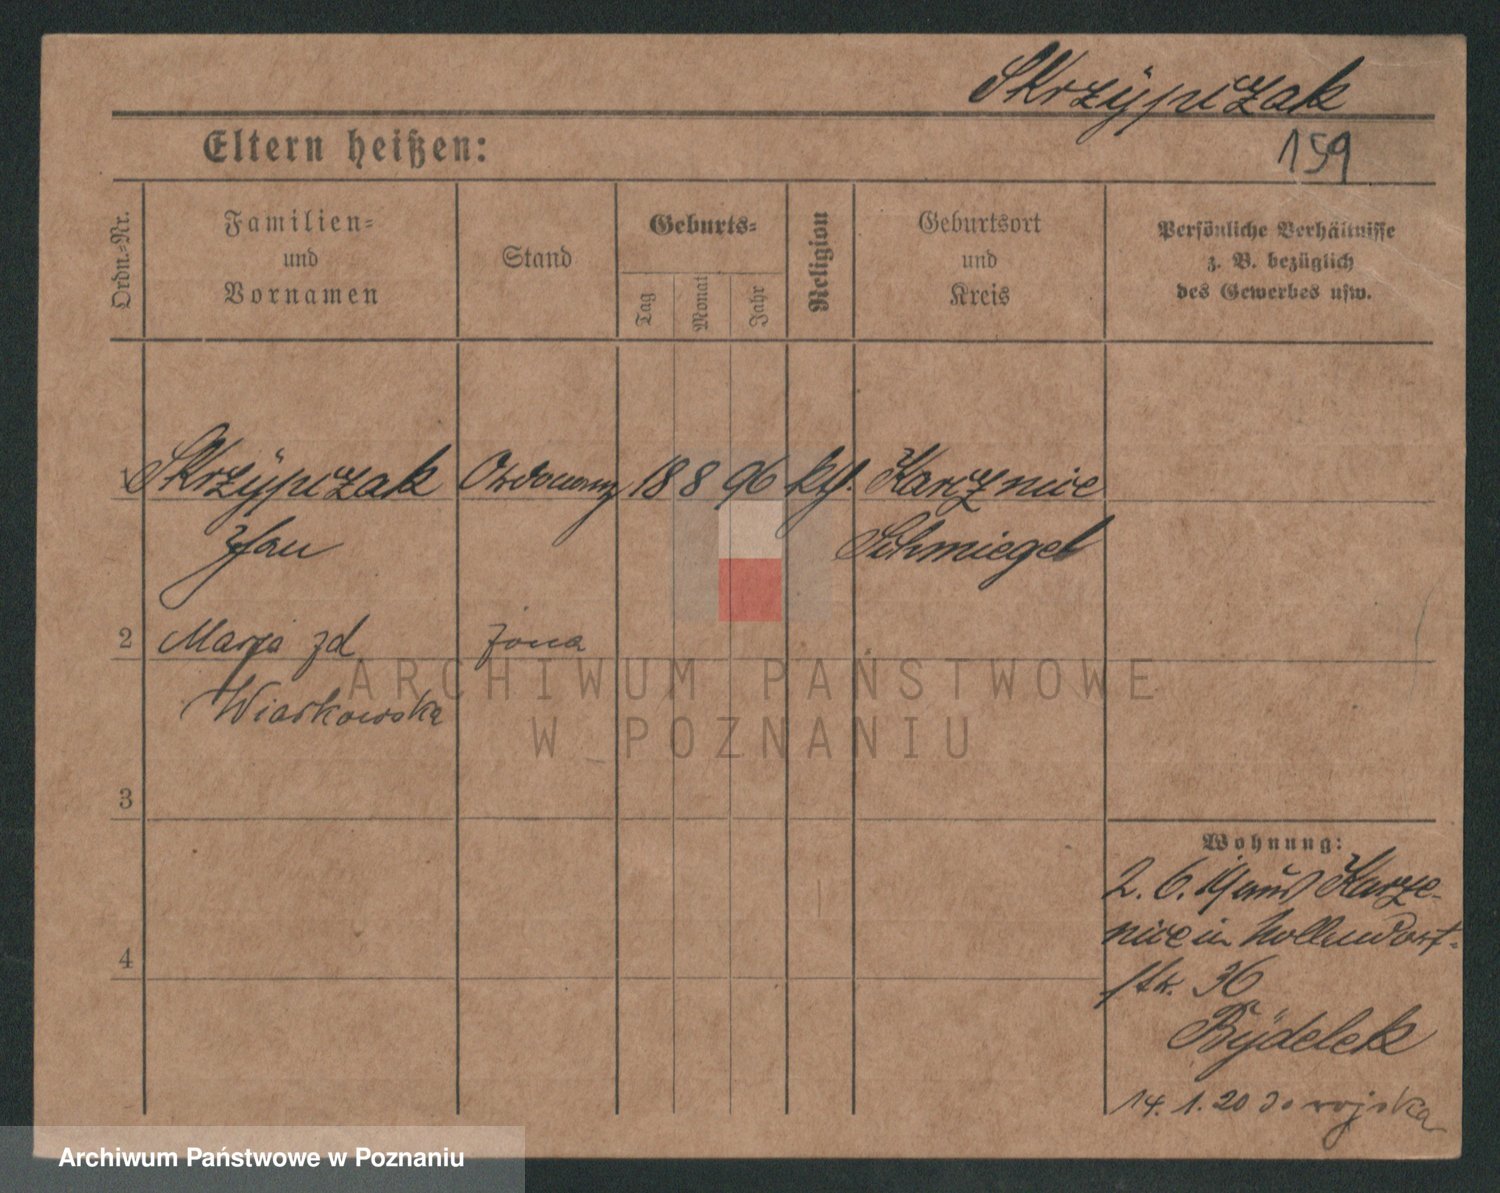 Skrzypczak
159
Eltern heißen:
Ordn.-Nr.
Familien-
und
Vornamen
Stand
Geburts-
Tag
Monat
Jahr
Religion
Geburtsort
und
Kreis
Persönliche Verhältnisse
z. B. bezüglich
des Gewerbes usw.
1 Skrzypczak 18 8 96 kth.
Schmiegel
2 Marja zd żona
Wiarkowska
ARCHIWUM PAŃSTWOWE
W POZNANIU
3
Wohnung:
2. 6. 19 aus Karze-
nice in Nollendorf-
4
str. 36
Rydelek
14. 1. 20 do wojska
Archiwum Państwowe w Poznaniu